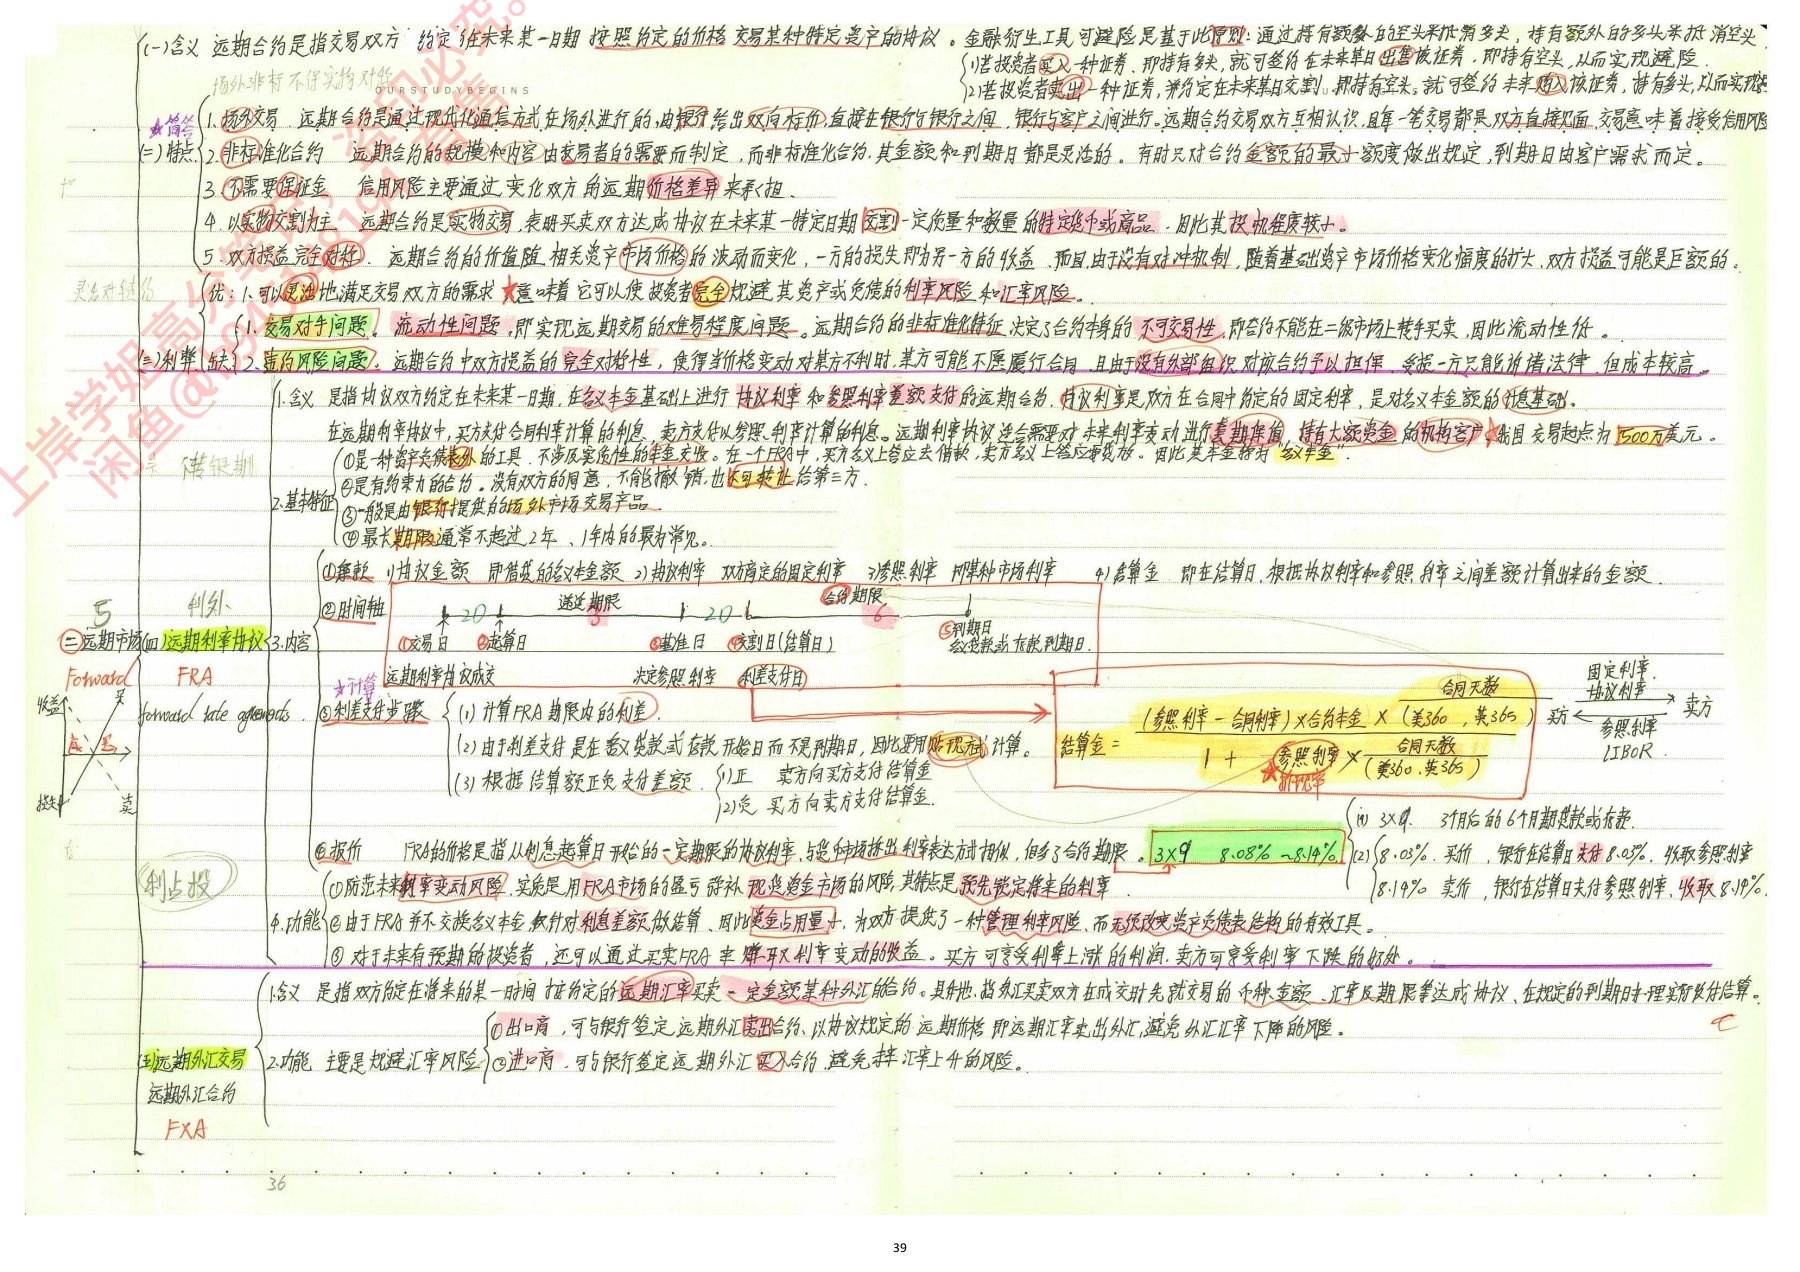 (一)含义 远期合约是指交易双方约定在未来某一日期按照约定的价格交易某种特定资产的协议。金融衍生工具可避险是基于此原则：通过持有额外的空头来抵消多头，持有额外的多头来抵消空头
(1)若投资者买入一种证券，即持有多头，就可签约在未来某日出售该证券，即持有空头，从而实现避险.
(2)若投资者卖出一种证券，并约定在未来某日交割，即持有空头，就可签约未来购入该证券，持有多头，从而实现避
场外非标不保实物对称
OURSTUDYBEGINS
☆简答
(二)特点
1.场外交易 远期合约是通过现代化通信方式在场外进行的，由银行给出双向标价，直接在银行与银行之间、银行与客户之间进行。远期合约交易双方互相认识，且每一笔交易都是双方直接见面，交易意味着接受信用风险
2.非标准化合约 远期合约的规模和内容由交易者的需要而制定，而非标准化合约，其金额和到期日都是灵活的。有时只对合约金额的最小额度做出规定，到期日由客户需求而定。
3.不需要保证金 信用风险主要通过变化双方的远期价格差异来承担.
4.以实物交割为主 远期合约是实物交易，表明买卖双方达成协议在未来某一特定日期交割一定质量和数量的特定货币或商品，因此其投机程度较小。
5.双方损益完全对称. 远期合约的价值随相关资产市场价格的波动而变化，一方的损失即为另一方的收益，而且，由于没有对冲机制，随着基础资产市场价格变化幅度的扩大，双方损益可能是巨额的。
优：1.可以灵活地满足交易双方的需求 ★意味着它可以使投资者完全规避其资产或负债的利率风险和汇率风险。
(三)利弊 缺
1.交易对手问题. 流动性问题，即实现远期交易的难易程度问题。远期合约的非标准化特征决定了合约本身的不可交易性，即合约不能在二级市场上转手买卖，因此流动性低。
2.违约风险问题：远期合约中双方损益的完全对称性，使得当价格变动对某方不利时，某方可能不愿履行合同，且由于没有外部组织对该合约予以担保，受损一方只能诉诸法律，但成本较高。
1.含义 是指协议双方约定在未来某一日期，在名义本金基础上进行协议利率和参照利率差额支付的远期合约，协议利率是双方在合同中约定的固定利率，是对名义本金额的计息基础。
在远期利率协议中，买方支付合同利率计算的利息，卖方支付以参照利率计算的利息。远期利率协议适合需要对未来利率变动进行套期保值，持有大额资金的机构客户★我国交易起点为1500万美元。
2.基本特征
①是一种资产负债表外的工具，不涉及实质性的本金交收。在一个FRA中，买方名义上答应去借款，卖方名义上答应要贷放。因此其本金称为“名义本金”.
②是有约束力的合约。没有双方的同意，不能撤销，也不可转让给第三方.
③一般是由银行提供的场外市场交易产品.
④最长期限通常不超过2年、1年内的最为常见。
二远期市场
Forward
(四)远期利率协议
FRA
forward rate agreements.
3.内容
①条款 1)协议金额 即借贷的名义本金额 2)协议利率 双方商定的固定利率 3)参照利率 即某种市场利率 4)结算金 即在结算日，根据协议利率和参照利率之间差额计算出来的金额.
②时间轴 20 递延期限 3 20 合约期限 6
①交易日 ②起算日 ③基准日 ④交割日(结算日) ⑤到期日
名义贷款或存款到期日.
远期利率协议成交 决定参照利率 利差支付日
☆计算
③利差支付步骤
(1)计算FRA期限内的利差.
(2)由于利差支付是在名义贷款或存款开始日而不是到期日，因此要用贴现方式计算。
(3)根据结算额正负支付差额
(1)正 卖方向买方支付结算金
(2)负 买方向卖方支付结算金.
结算金= (参照利率－合同利率)×合约本金× 合同天数 (美360，英365)
1 + 参照利率× 合同天数 (美360.英365)
★折现率
买方 固定利率. 协议利率 卖方
参照利率 LIBOR.
收益 买
卖
损失
④报价 FRA的价格是指从利息起算日开始的一定期限的协议利率，与货币市场拆出利率表达方式相似，但多了合约期限。3×9 8.08%~8.14%
(1) 3×9. 3个月后的6个月期贷款或存款.
(2) 8.03%. 买价，银行在结算日支付8.03%，收取参照利率
8.14% 卖价，银行在结算日支付参照利率，收取8.14%
利占投
4.功能
①防范未来利率变动风险. 实质是用FRA市场的盈亏弥补现货资金市场的风险，其特点是预先锁定将来的利率
②由于FRA并不交换名义本金，仅针对利息差额做结算，因此资金占用量小，为双方提供了一种管理利率风险、而无须改变资产负债表结构的有效工具。
③对于未来有预期的投资者，还可以通过买卖FRA来赚取利率变动的收益。买方可享受利率上涨的利润，卖方可享受利率下跌的好处。
(五)远期外汇交易
远期外汇合约
FXA
1.含义 是指双方约定在将来的某一时间按约定的远期汇率买卖一定金额某种外汇的合约。具体地，指外汇买卖双方在成交时先就交易的币种、金额、汇率及期限等达成协议、在规定的到期日办理实际收付结算。
2.功能 主要是规避汇率风险
①出口商，可与银行签定远期外汇卖出合约，以协议规定的远期价格即远期汇率卖出外汇，避免外汇汇率下降的风险。
②进口商，可与银行签定远期外汇买入合约，避免未来汇率上升的风险。
36
39